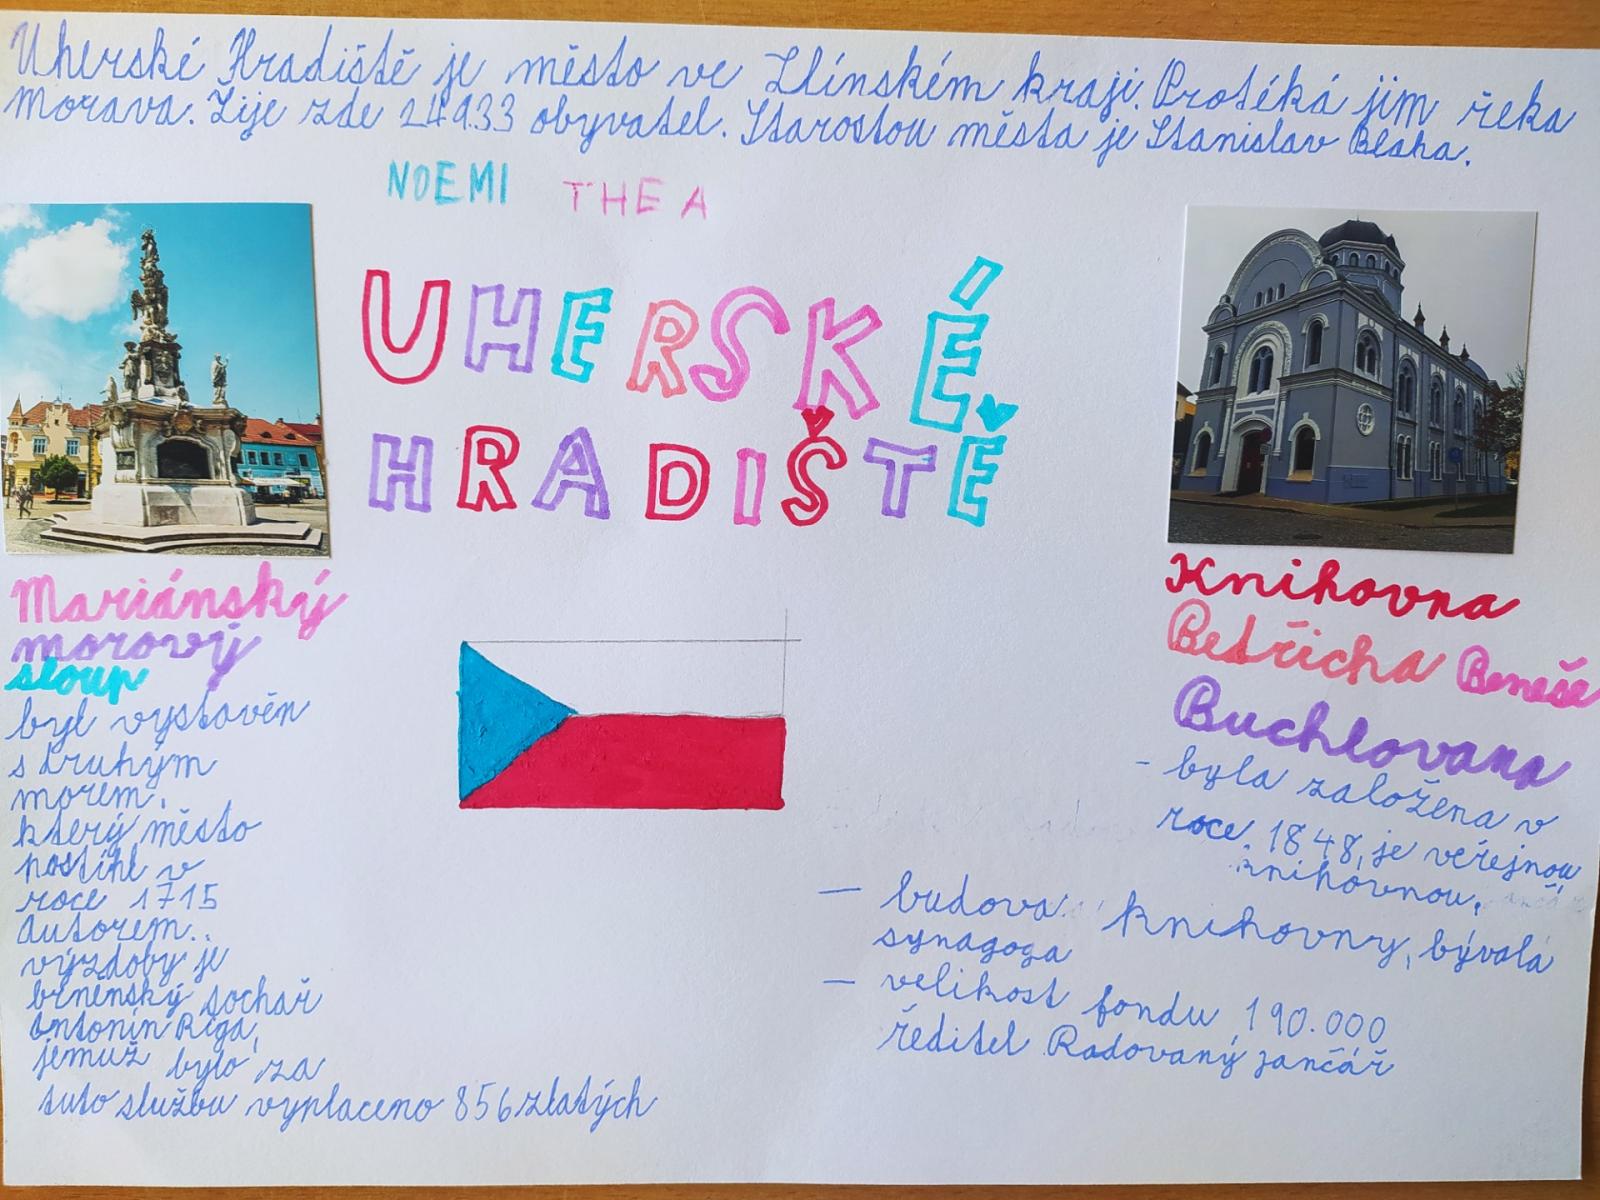 Uherské Hradiště je město ve Zlínském kraji. Protéká jim řeka
Morava. Žije zde 24933 obyvatel. Starostou města je Stanislav Blaha.
NOEMI THEA
UHERSKÉ
HRADIŠTĚ
Mariánský
morový
sloup
byl vystavěn
s druhým
morem,
který město
postihl v
roce 1715
Autorem
výzdoby je
brněnský sochař
Antonín Riga,
jemuž bylo za
tuto službu vyplaceno 856 zlatých
Knihovna
Bedřicha Beneše
Buchlovana
- byla založena v
roce 1848, je veřejnou
knihovnou,
- budova knihovny, bývalá
synagoga
- velikost fondu 190.000
ředitel Radovaný Jančář